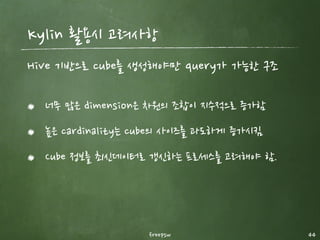 Kylin 활용시 고려사항
Hive 기반으로 cube를 생성해야만 query가 가능한 구조
너무 많은 dimension은 차원의 조합이 지수적으로 증가함
높은 cardinality는 cube의 사이즈를 과도하게 증가시킴
cube 정보를 최신데이터로 갱신하는 프로세스를 고려해야 함.
freepsw
44